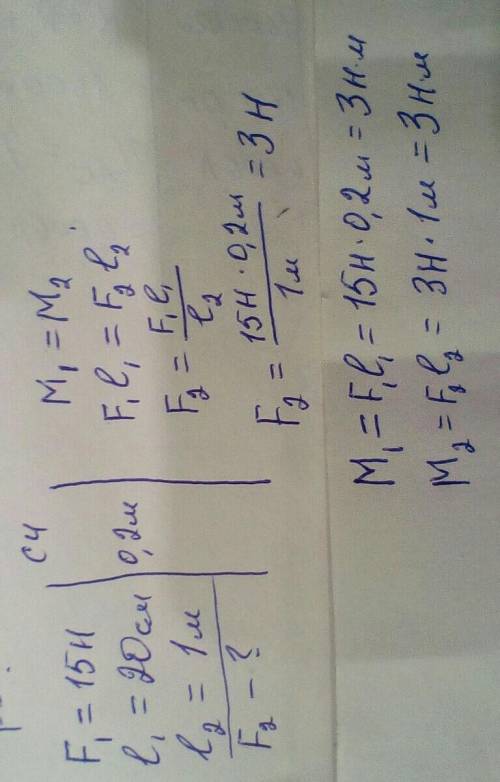 F₁ = 15Н
l₁ = 20см
l₂ = 1м
F₂ - ?
СИ
0,2м
M₁ = M₂
F₁l₁ = F₂l₂.
F₂ = F₁l₁ / l₂
F₂ = 15Н·0,2м / 1м = 3Н
M₁ = F₁l₁ = 15Н·0,2м = 3Н·м
M₂ = F₂l₂ = 3Н·1м = 3Нм